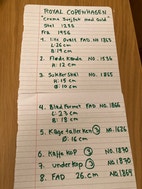 ROYAL COPENHAGEN
"Creme Curved med Guld"
Stel 1235
Fra 1956
1. Lille Ovalt FAD NO. 1865
L: 26 cm
B: 19 cm
2. Fløde Kande NO. 1536
H: 12 cm
3. Sukker Skål NO. 1855
H: 15 cm
Ø: 10 cm
4. Blad Format FAD NO. 1866
L: 23 cm
B: 18 cm
5. Kage tallerken 3 NO. 1626
Ø: 16 cm
6. Kaffe Kop 3 NO. 1870
7. Under kop 3 NO. 1870
8. FAD 26 cm NO. 1869